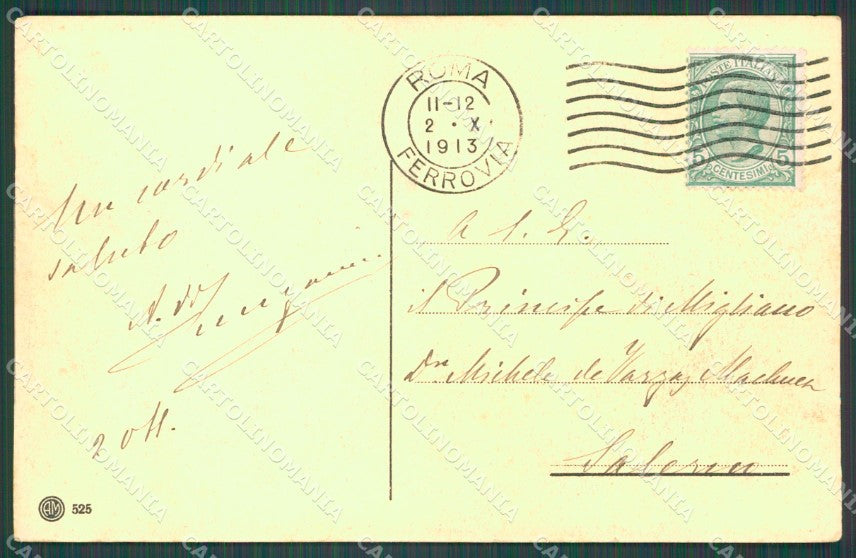 ROMA
11-12
2 · X ·
1913
FERROVIA
POSTE ITALIANE
5 5
CENTESIMI
Un cordiale
saluto
2 ott.
A S. E.
il Principe di Migliano
Dn Michele de Vargas Machuca
Salerno
AM 525
CARTOLINOMANIA